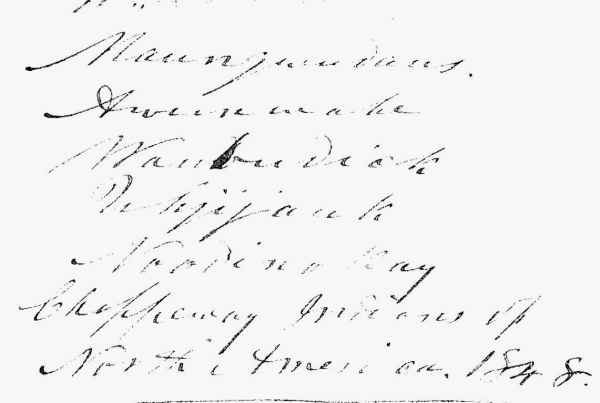 Maungwudaus.
Awunwabe
Waubudick
Uhjijauk
Noodinokay
Choppeway Indians of
North America. 1848.